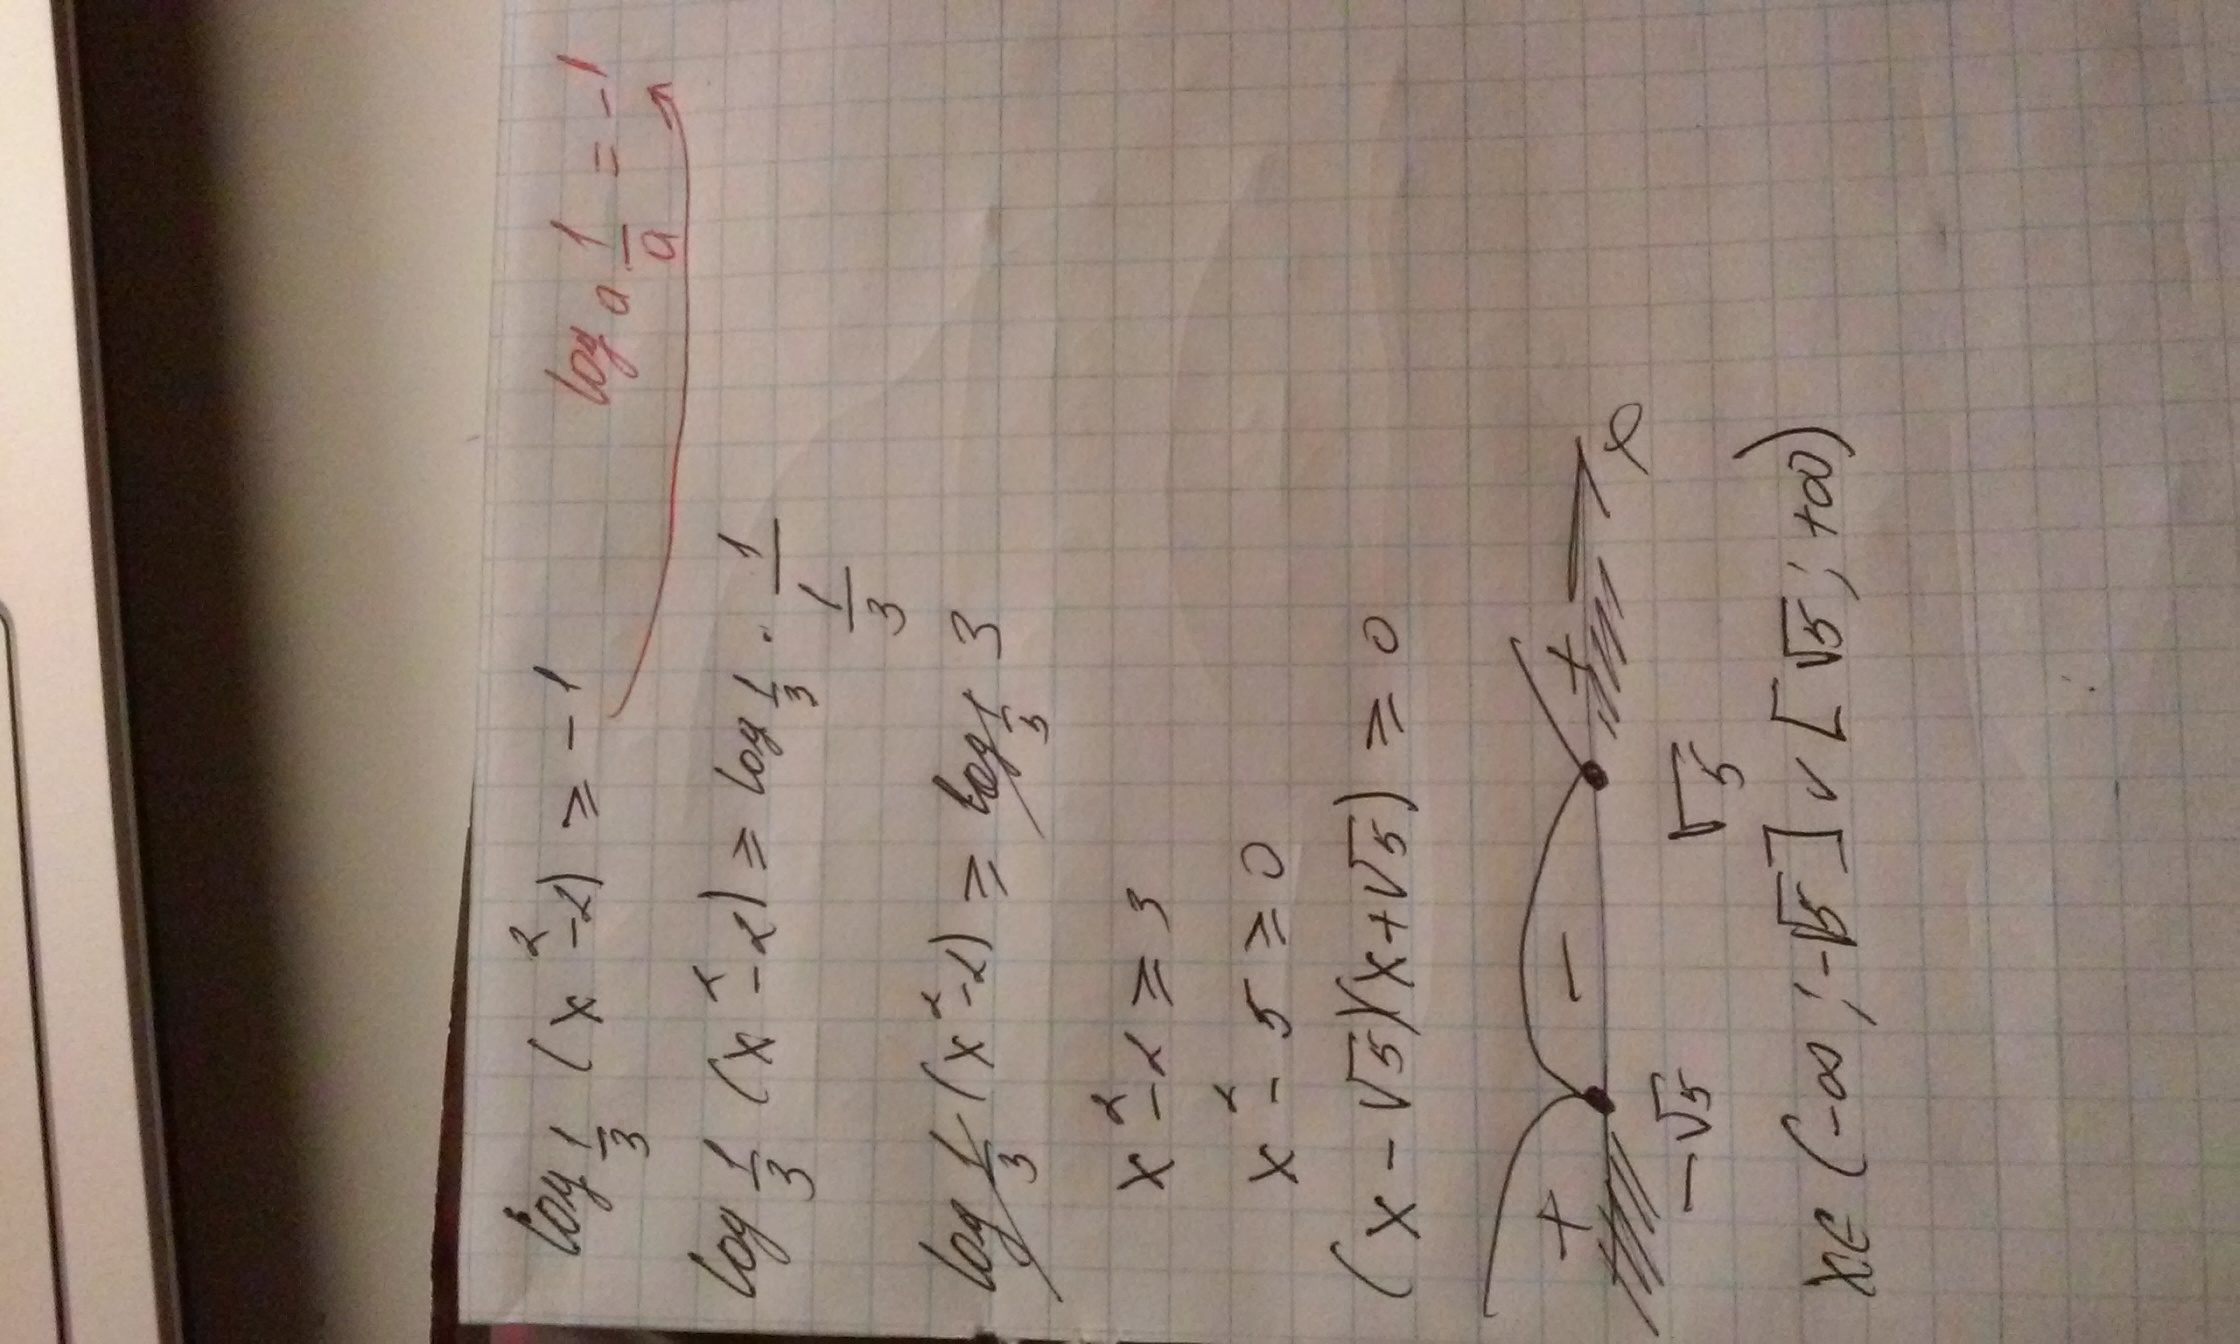 log 1/3 (x² - 2) ≥ -1
log a 1/a = -1
log 1/3 (x² - 2) ≥ log 1/3 · 1/(1/3)
log 1/3 (x² - 2) ≥ log 1/3 3
x² - 2 ≥ 3
x² - 5 ≥ 0
(x - √5)(x + √5) ≥ 0
+ - +
-√5 √5 x
x∈ (-∞; -√5] ∨ [√5; +∞)